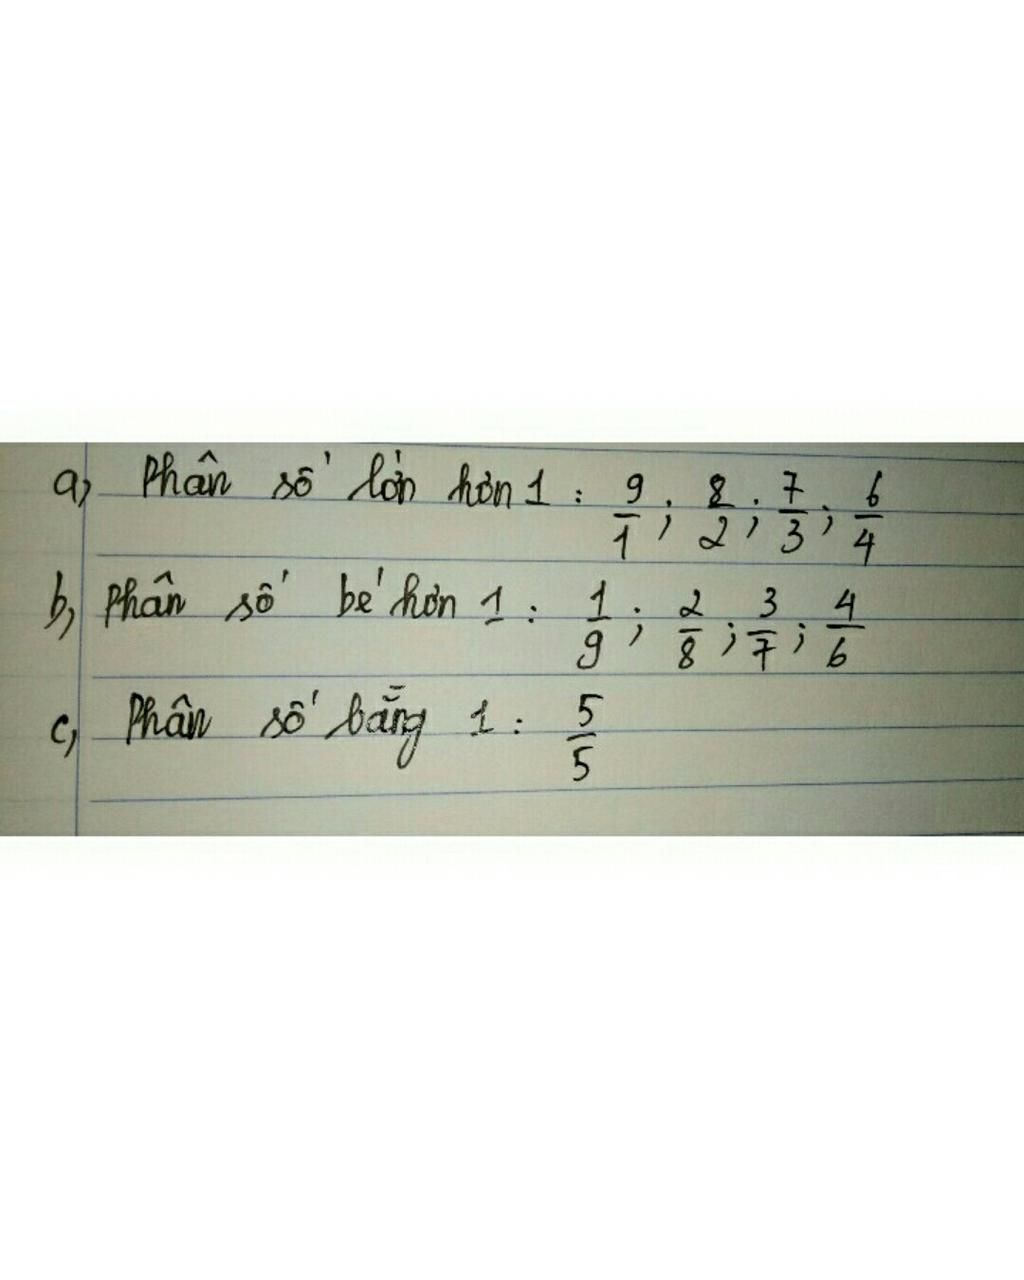 a, Phân số lớn hơn 1 : 9/1 ; 8/2 ; 7/3 ; 6/4
b, Phân số bé hơn 1 : 1/9 ; 2/8 ; 3/7 ; 4/6
c, Phân số bằng 1 : 5/5